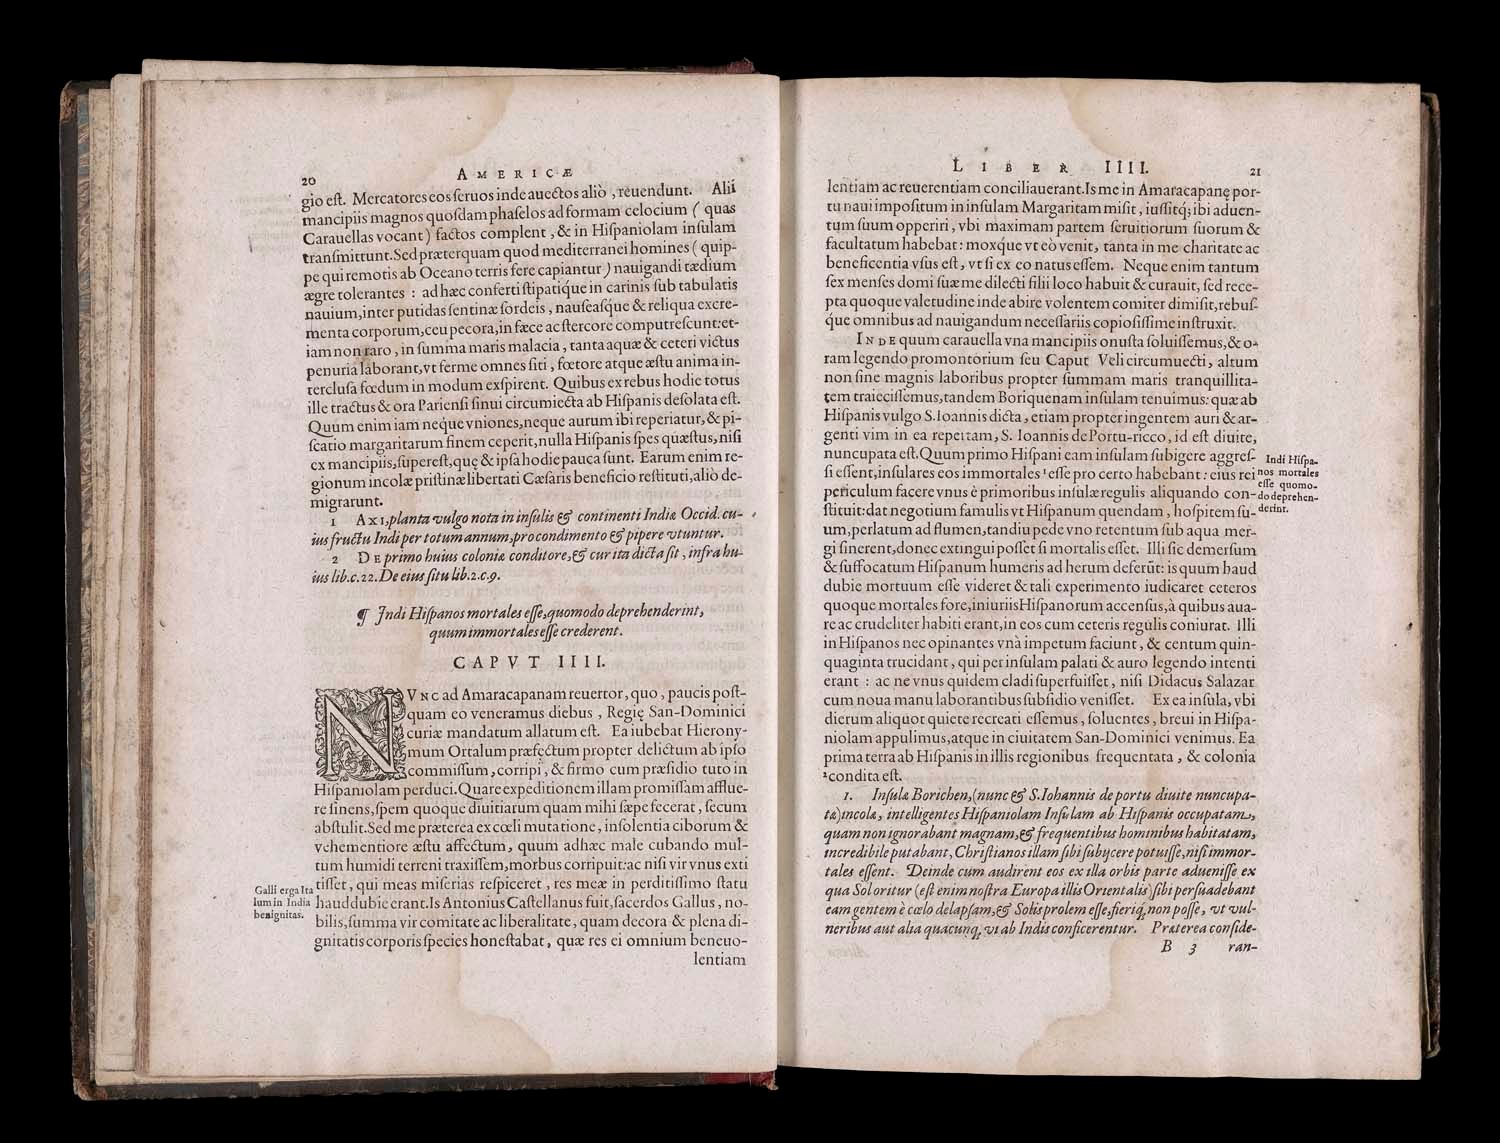 20
AMERICÆ
gio eſt. Mercatores eos ſeruos inde auectos aliò, reuendunt. Alii
mancipiis magnos quoſdam phaſelos ad formam celocium ( quas
Carauellas vocant ) factos complent, & in Hiſpaniolam inſulam
tranſmittunt. Sed præterquam quod mediterranei homines ( quip-
pe qui remotis ab Oceano terris fere capiantur ) nauigandi tædium
ægre tolerantes : ad hæc conferti ſtipatiq́ue in carinis ſub tabulatis
nauium, inter putidas ſentinæ ſordeis, nauſeaſq́ue & reliqua excre-
menta corporum, ceu pecora, in fæce ac ſtercore computreſcunt: et-
iam non raro, in ſumma maris malacia, tanta aquæ & ceteri victus
penuria laborant, vt ferme omnes ſiti, fœtore atque æſtu anima in-
tercluſa fœdum in modum exſpirent. Quibus ex rebus hodie totus
ille tractus & ora Parienſi ſinui circumiecta ab Hiſpanis deſolata eſt.
Quum enim iam neque vniones, neque aurum ibi reperiatur, & pi-
ſcatio margaritarum finem ceperit, nulla Hiſpanis ſpes quæſtus, niſi
ex mancipiis, ſupereſt, quę & ipſa hodie pauca ſunt. Earum enim re-
gionum incolæ priſtinæ libertati Cæſaris beneficio reſtituti, aliò de-
migrarunt.
1 AXI, planta vulgo nota in inſulis & continenti Indiæ Occid. cu-
ius fructu Indi per totum annum, pro condimento & pipere vtuntur.
2 DE primo huius coloniæ conditore, & cur ita dicta ſit, infra hu-
ius lib. c. 22. De eius ſitu lib. 2. c. 9.
¶ Indi Hiſpanos mortales eſſe, quomodo deprehenderint,
quum immortales eſſe crederent.
CAPVT IIII.
NVNC ad Amaracapanam reuertor, quo, paucis poſt-
quam eo veneramus diebus, Regię San-Dominici
curiæ mandatum allatum eſt. Ea iubebat Hierony-
mum Ortalum præfectum propter delictum ab ipſo
commiſſum, corripi, & firmo cum præſidio tuto in
Hiſpaniolam perduci. Quare expeditionem illam promiſſam afflue-
re ſinens, ſpem quoque diuitiarum quam mihi ſæpe fecerat, ſecum
abſtulit. Sed me præterea ex cœli mutatione, inſolentia ciborum &
vehementiore æſtu affectum, quum adhæc male cubando mul-
tum humidi terreni traxiſſem, morbus corripuit: ac niſi vir vnus exti
tiſſet, qui meas miſerias reſpiceret, res meæ in perditiſſimo ſtatu
haud dubie erant. Is Antonius Caſtellanus fuit, ſacerdos Gallus, no-
bilis, ſumma vir comitate ac liberalitate, quam decora & plena di-
gnitatis corporis ſpecies honeſtabat, quæ res ei omnium beneuo-
lentiam
Galli erga Ita
lum in India
benignitas.
LIBER IIII.
21
lentiam ac reuerentiam conciliauerant. Is me in Amaracapanę por-
tu naui impoſitum in inſulam Margaritam miſit, iuſſitq́; ibi aduen-
tum ſuum opperiri, vbi maximam partem ſeruitiorum ſuorum &
facultatum habebat: moxque vt eò venit, tanta in me charitate ac
beneficentia vſus eſt, vt ſi ex eo natus eſſem. Neque enim tantum
ſex menſes domi ſuæ me dilecti filii loco habuit & curauit, ſed rece-
pta quoque valetudine inde abire volentem comiter dimiſit, rebuſ-
q́ue omnibus ad nauigandum neceſſariis copioſiſſime inſtruxit.
INDE quum carauella vna mancipiis onuſta ſoluiſſemus, & o-
ram legendo promontorium ſeu Caput Veli circumuecti, altum
non ſine magnis laboribus propter ſummam maris tranquillita-
tem traieciſſemus, tandem Boriquenam inſulam tenuimus: quæ ab
Hiſpanis vulgo S. Ioannis dicta, etiam propter ingentem auri & ar-
genti vim in ea repertam, S. Ioannis de Portu-ricco, id eſt diuite,
nuncupata eſt. Quum primo Hiſpani eam inſulam ſubigere aggreſ-
ſi eſſent, inſulares eos immortales ¹ eſſe pro certo habebant: eius rei
periculum facere vnus è primoribus inſulæ regulis aliquando con-
ſtituit: dat negotium famulis vt Hiſpanum quendam, hoſpitem ſu-
um, perlatum ad flumen, tandiu pede vno retentum ſub aqua mer-
gi ſinerent, donec extingui poſſet ſi mortalis eſſet. Illi ſic demerſum
& ſuffocatum Hiſpanum humeris ad herum deferūt: is quum haud
dubie mortuum eſſe videret & tali experimento iudicaret ceteros
quoque mortales fore, iniuriis Hiſpanorum accenſus, à quibus aua-
re ac crudeliter habiti erant, in eos cum ceteris regulis coniurat. Illi
in Hiſpanos nec opinantes vnà impetum faciunt, & centum quin-
quaginta trucidant, qui per inſulam palati & auro legendo intenti
erant : ac ne vnus quidem cladi ſuperfuiſſet, niſi Didacus Salazar
cum noua manu laborantibus ſubſidio veniſſet. Ex ea inſula, vbi
dierum aliquot quiete recreati eſſemus, ſoluentes, breui in Hiſpa-
niolam appulimus, atque in ciuitatem San-Dominici venimus. Ea
prima terra ab Hiſpanis in illis regionibus frequentata, & colonia
²condita eſt.
1. Inſulæ Borichen, (nunc & S. Iohannis de portu diuite nuncupa-
tæ) incolæ, intelligentes Hiſpaniolam Inſulam ab Hiſpanis occupatam,
quam non ignorabant magnam, & frequentibus hominibus habitatam,
incredibile putabant, Chriſtianos illam ſibi ſubijcere potuiſſe, niſi immor-
tales eſſent. Deinde cum audirent eos ex illa orbis parte adueniſſe ex
qua Sol oritur (eſt enim noſtra Europa illis Orientalis) ſibi perſuadebant
eam gentem è cœlo delapſam, & Solis prolem eſſe, fieriq́; non poſſe, vt vul-
neribus aut alia quacunq; vi ab Indis conficerentur. Præterea conſide-
B 3 ran-
Indi Hiſpa-
nos mortales
eſſe quomo-
do deprehen-
derint.